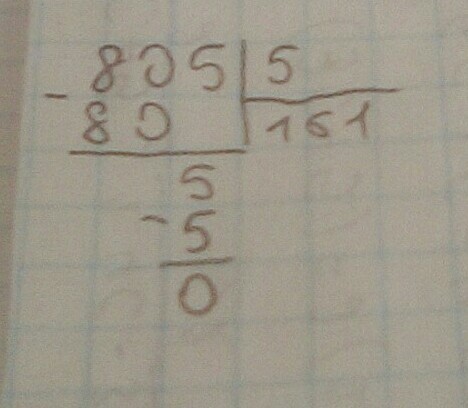 805 5
- 80 161
5
- 5
0